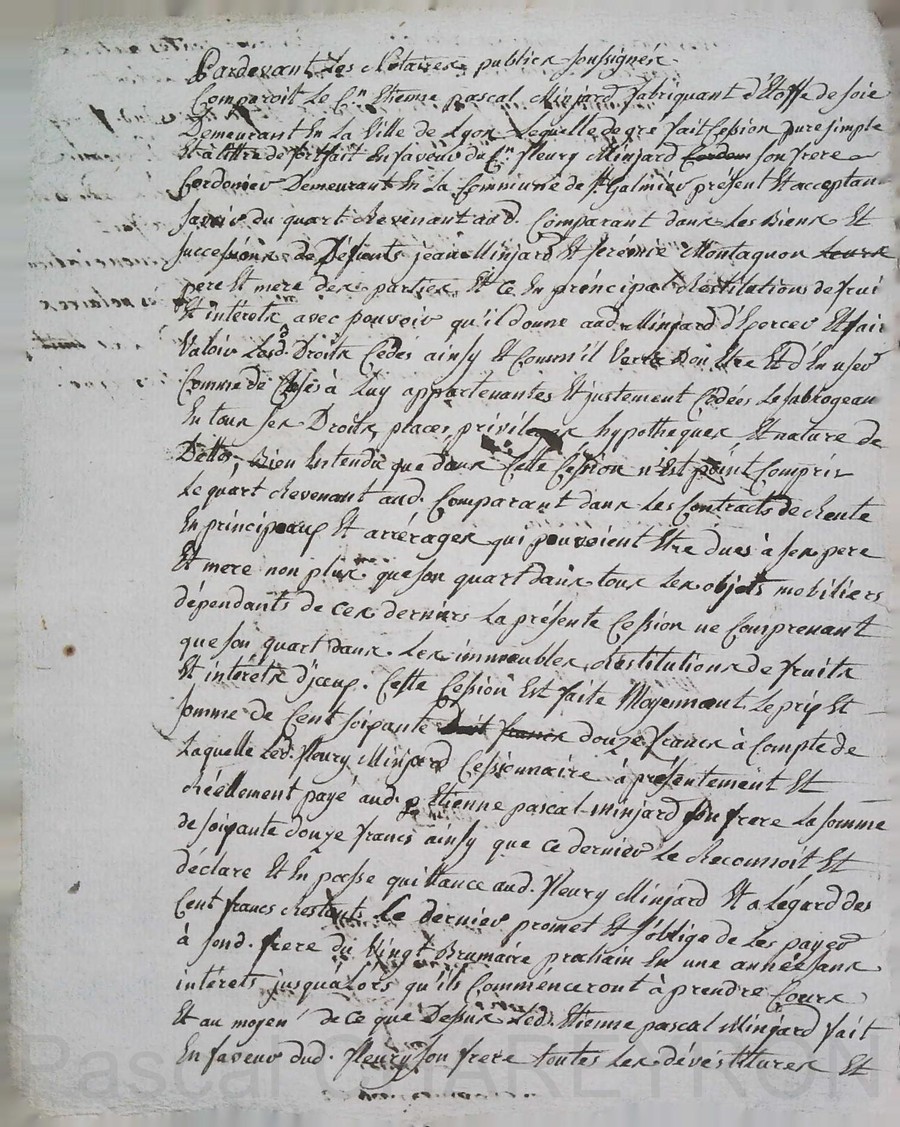 Pardevant Les Notaires publics soussignés
Comparoit Le Cn Etienne pascal Minjard fabriquant d'Etoffe de soie
Demeurant En La Ville de Lyon Lequelle de gré fait Cession pure simple
Et à tittre de forfait En faveur du Cn fleury Minjard son frere
Cordonier Demeurant En La Commune de St Galmier présent Et acceptan
savoir du quart Revenant aud. Comparant dans Les Biens Et
successions de Défunts jean Minjard Et jeremie Montagnon Leurs
pere Et mere des parties Et Ce En principal Restitutions de frui
Et intérets avec pouvoir qu'il donne aud. Minjard d'Exercer Et fair
Valoir Lesd. Droits Cédés ainsy Et Comm'il Verra Bon Etre Et d'En user
Comme de Choses à Luy appartenantes Et justement Cédées Le subrogeau
En tous ses Droits, places, privileges hypotheques Et nature de
Dettes, Bien Entendu que dans Cette Cession n'Est point Compris
Le quart Revenant aud. Comparant dans Les Contracts de Rente
En principaux Et arrérages qui pouvoient Etre dues à ses pere
Et mere non plus que son quart dans tous Les objets mobiliers
dépendants de ces derniers La présente Cession ne Comprenant
que son quart dans Les immeubles, Restitutions de fruits
Et intérets d'jceux. Cette Cession Est faite Moyennant Le prix Et
somme de Cent soixante douze francs à Compte de
Laquelle Led. fleury Minjard Cessionnaire à présentement Et
Réellement payé aud. Etienne pascal Minjard son frere La somme
de soixante douze francs ainsy que ce dernier Le Reconnoit Et
déclare Et En passe quittance aud. fleury Minjard Et a Légard des
Cent francs Restants Le dernier promet Et s'oblige de Les payer
à sond. frere du Vingt Brumaire prochain En une année sans
intérets jusqu'alors qu'ils Commenceront à prendre Cours
Et au moyen de ce que Dessus Led. Etienne pascal Minjard fait
En faveur dud. fleury son frere toutes Les dévestitures Et
Pascal CHAREYRON